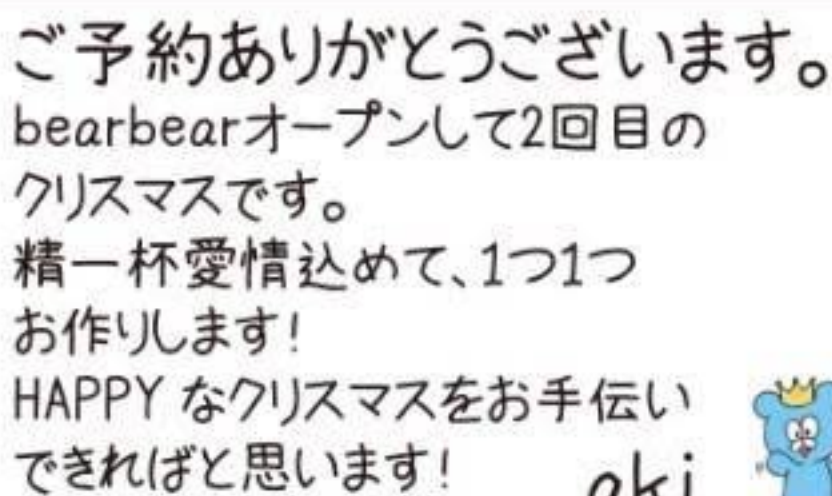 ご予約ありがとうございます。
bearbearオープンして2回目の
クリスマスです。
精一杯愛情込めて、1つ1つ
お作りします!
HAPPY なクリスマスをお手伝い
できればと思います!
aki